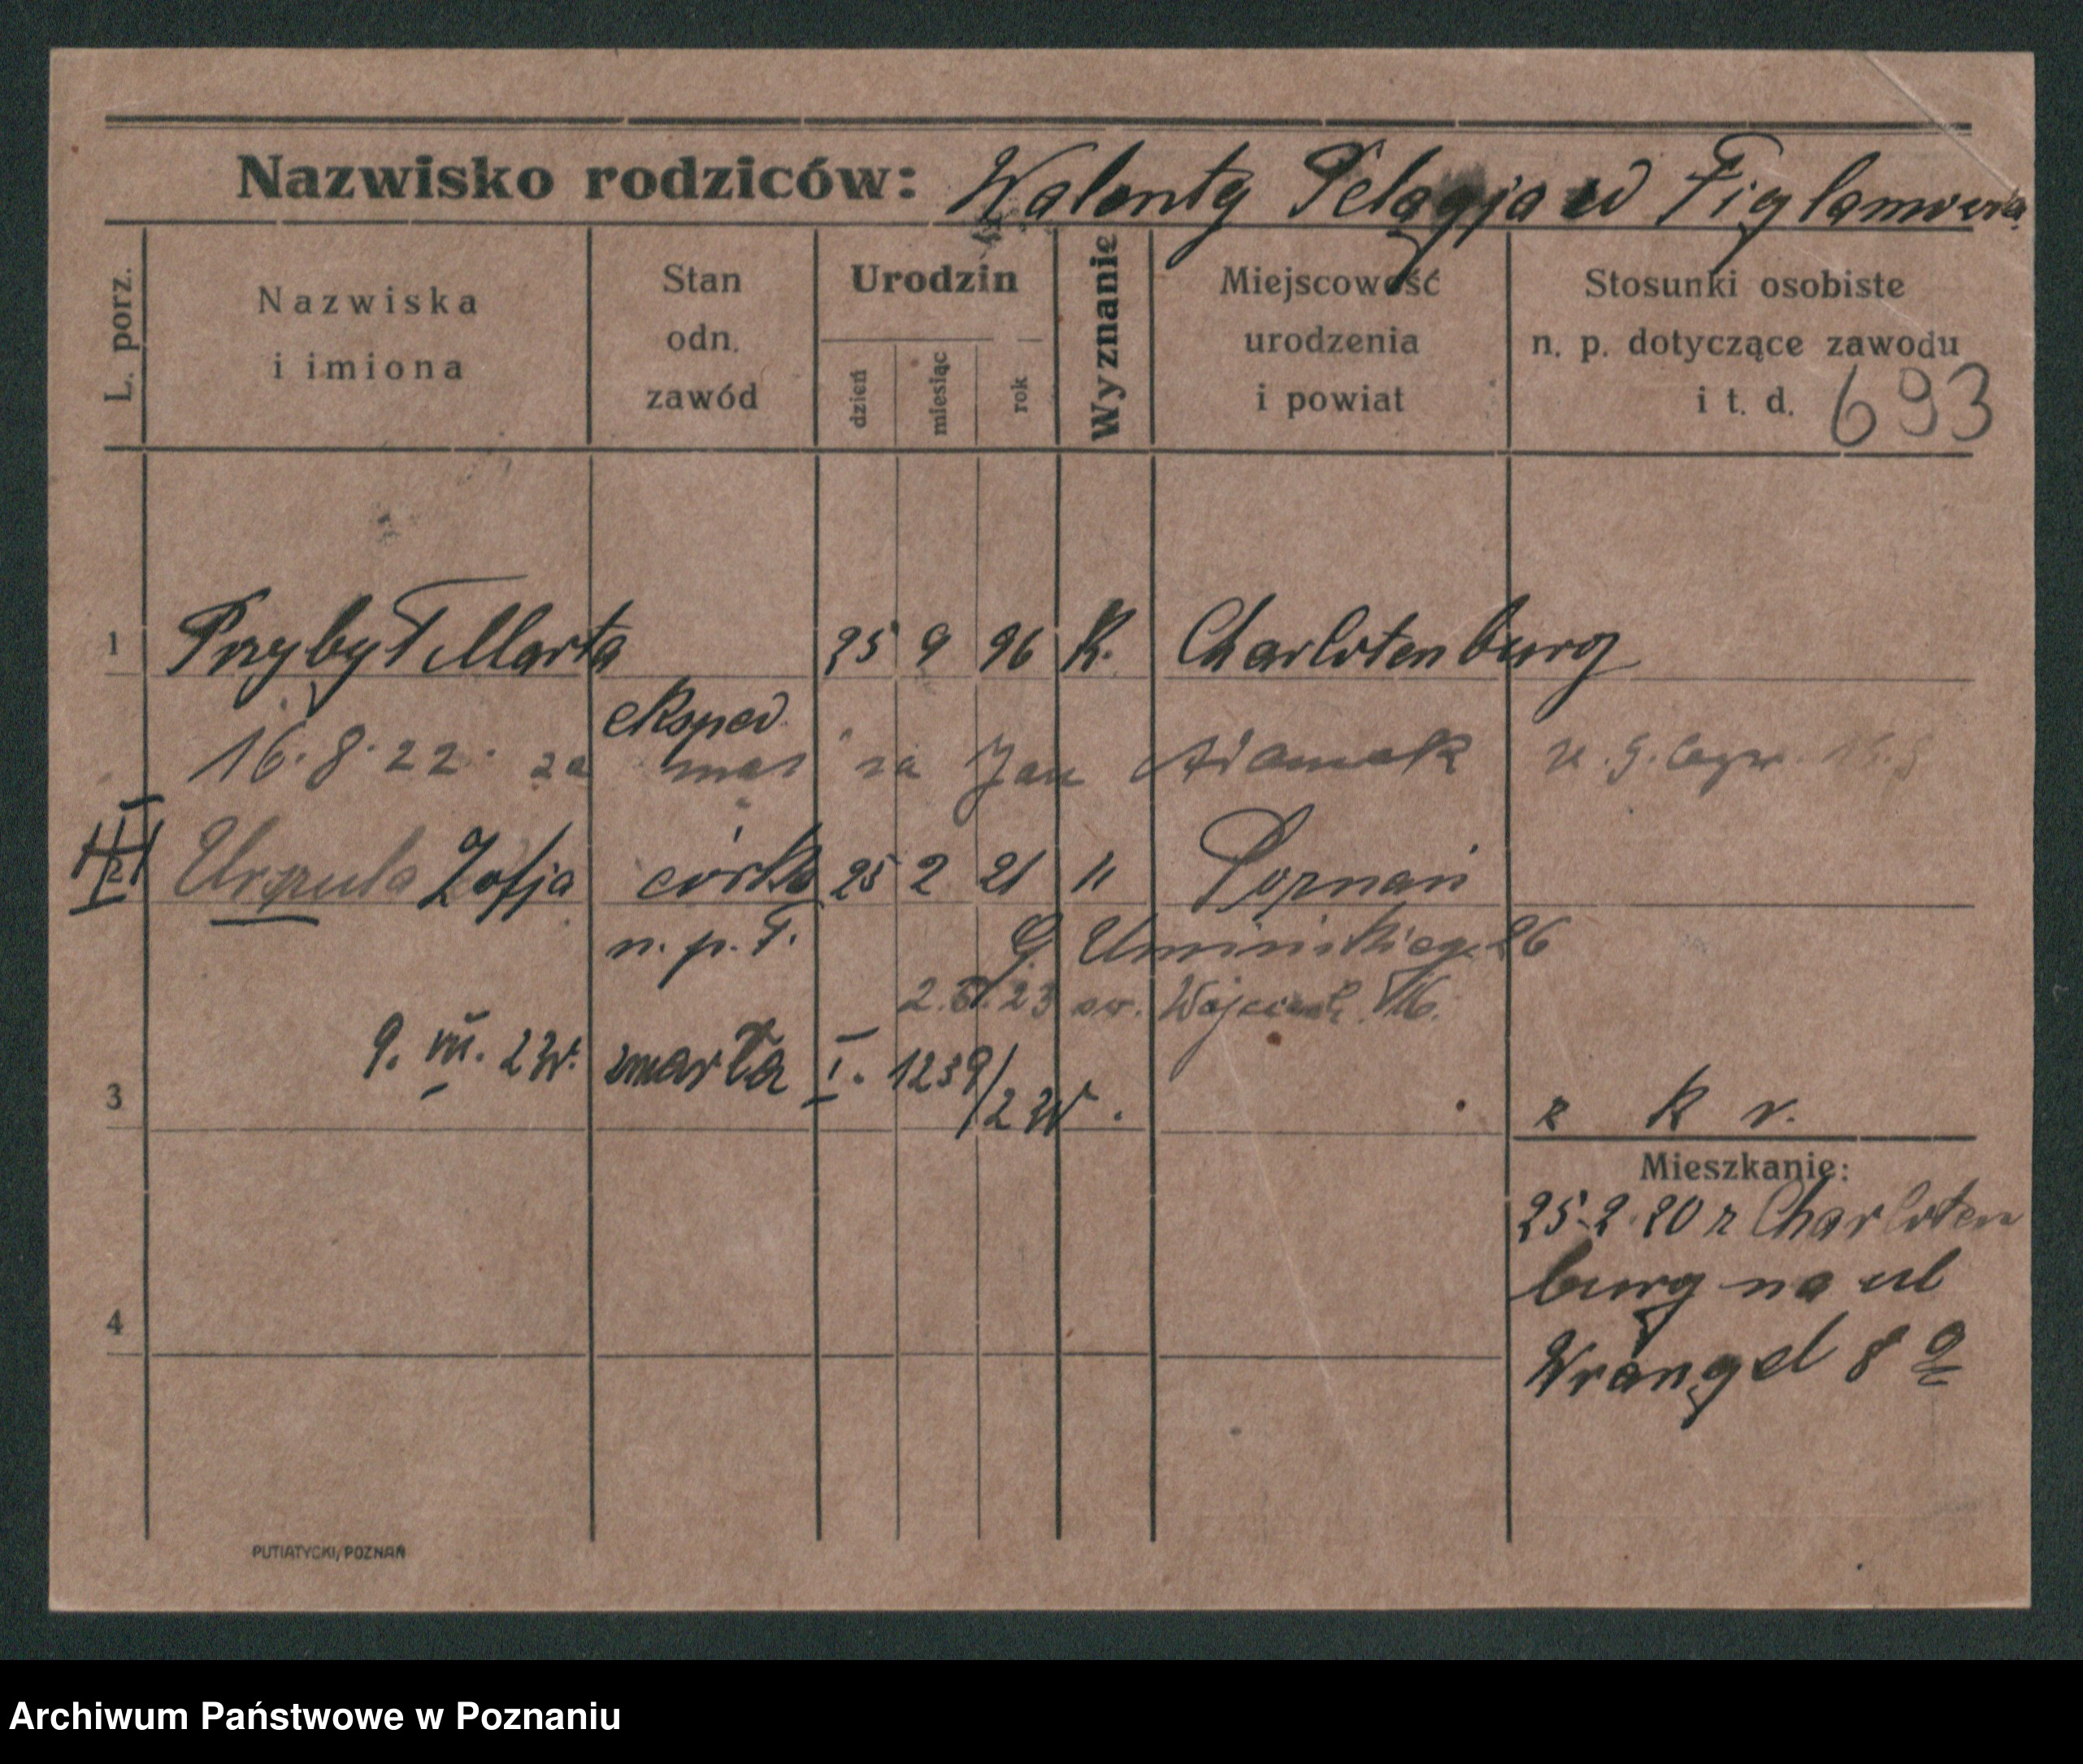 Nazwisko rodziców: Walenty Pelagja w
L. porz.
Nazwiska
i imiona
Stan
odn.
zawód
Urodzin
dzień
miesiąc
rok
Wyznanie
Miejscowość
urodzenia
i powiat
Stosunki osobiste
n. p. dotyczące zawodu
i t. d. 693
1 Przybył Marta 25 9 96 K. Charlotenburg
eksped.
16.8.22. za mąż za Jan Adamek
2 Urszula Zofja córka 25 2 21 " Poznań
n. p. T.
G Umińskiego 26
23 św. Wojciech 16.
9. VII. zmarła I. 1239/
3
z k r.
Mieszkanie:
25.2.20 z Charloten
burg na ul
Wrangel 8
4
PUTIATYCKI, POZNAŃ
Archiwum Państwowe w Poznaniu